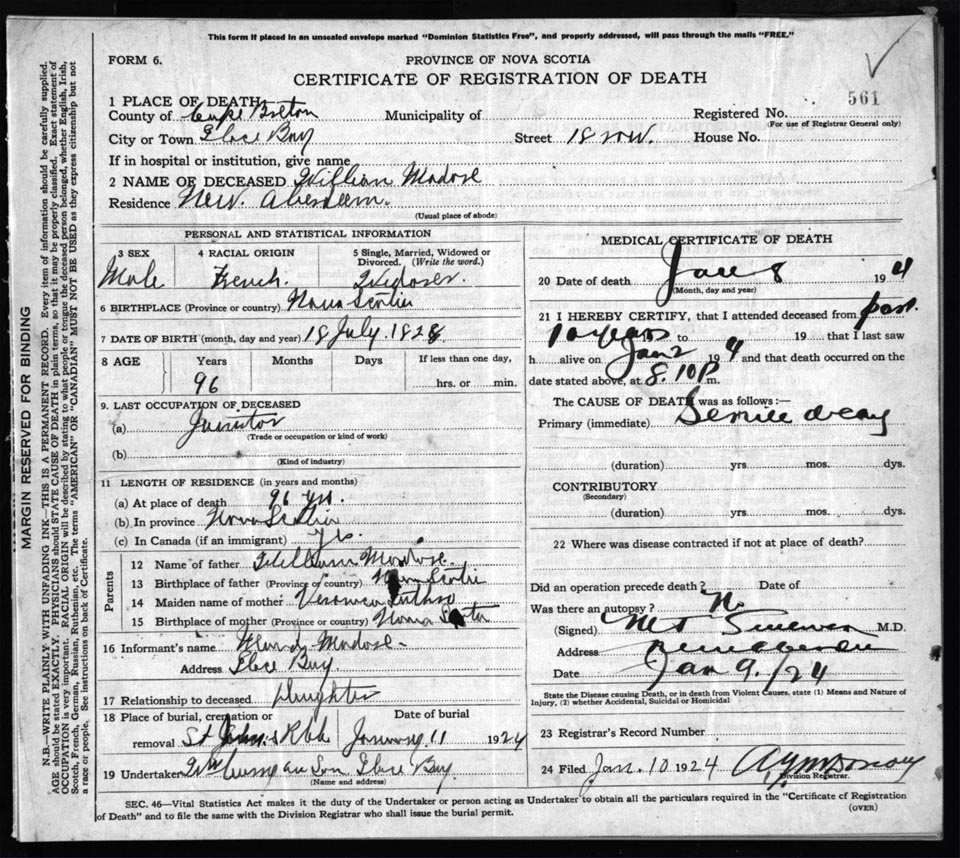 This form if placed in an unsealed envelope marked "Dominion Statistics Free", and properly addressed, will pass through the mails "FREE."
FORM 6.
PROVINCE OF NOVA SCOTIA
CERTIFICATE OF REGISTRATION OF DEATH
561
1 PLACE OF DEATH
County of Cape Breton Municipality of Registered No.
(For use of Registrar General only)
City or Town Glace Bay Street 18 row. House No.
If in hospital or institution, give name
2 NAME OF DECEASED William
Residence New. Aberdeen.
(Usual place of abode)
PERSONAL AND STATISTICAL INFORMATION
3 SEX 4 RACIAL ORIGIN 5 Single, Married, Widowed or Divorced. (Write the word.)
Male French.
6 BIRTHPLACE (Province or country) Nova Scotia
7 DATE OF BIRTH (month, day and year) 18 July. 1828
8 AGE Years Months Days If less than one day,
96 hrs. or min.
9. LAST OCCUPATION OF DECEASED
(a) Janitor
(Trade or occupation or kind of work)
(b)
(Kind of industry)
11 LENGTH OF RESIDENCE (in years and months)
(a) At place of death 96 yrs.
(b) In province Nova Scotia
(c) In Canada (if an immigrant) yrs.
Parents
12 Name of father William
13 Birthplace of father (Province or country) Nova Scotia
14 Maiden name of mother Veronica
15 Birthplace of mother (Province or country) Nova Scotia
16 Informant's name
Address Glace Bay.
17 Relationship to deceased Daughter
18 Place of burial, cremation or removal St John's Date of burial January 11 1924
19 Undertaker Son Glace Bay.
(Name and address)
MEDICAL CERTIFICATE OF DEATH
20 Date of death Jan 8 192 4
(Month, day and year)
21 I HEREBY CERTIFY, that I attended deceased from past
10 years to 19 that I last saw
h alive on Jan 2 192 4 and that death occurred on the
date stated above, at 8.10 P m.
The CAUSE OF DEATH was as follows:—
Primary (immediate) Senile decay
(duration) yrs. mos. dys.
CONTRIBUTORY
(Secondary)
(duration) yrs. mos. dys.
22 Where was disease contracted if not at place of death?
Did an operation precede death? Date of
Was there an autopsy? No
(Signed) M.D.
Address
Date Jan 9./24
State the Disease causing Death, or in death from Violent Causes, state (1) Means and Nature of Injury, (2) whether Accidental, Suicidal or Homicidal
23 Registrar's Record Number
24 Filed Jan. 10 1924
Division Registrar.
SEC. 46—Vital Statistics Act makes it the duty of the Undertaker or person acting as Undertaker to obtain all the particulars required in the "Certificate of Registration
of Death" and to file the same with the Division Registrar who shall issue the burial permit.
(OVER)
MARGIN RESERVED FOR BINDING
N.B.—WRITE PLAINLY WITH UNFADING INK—THIS IS A PERMANENT RECORD. Every item of information should be carefully supplied.
AGE should be stated EXACTLY. PHYSICIANS should STATE CAUSE OF DEATH in plain terms, so that it may be properly classified. Exact statement of
OCCUPATION is very important. RACIAL ORIGIN will be described by stating to what people or tongue the deceased person belonged, whether English, Irish,
Scotch, French, German, Russian, Ruthenian, etc. The terms "AMERICAN" or "CANADIAN" MUST NOT BE USED as they express citizenship but not
a race or people. See instructions on back of Certificate.